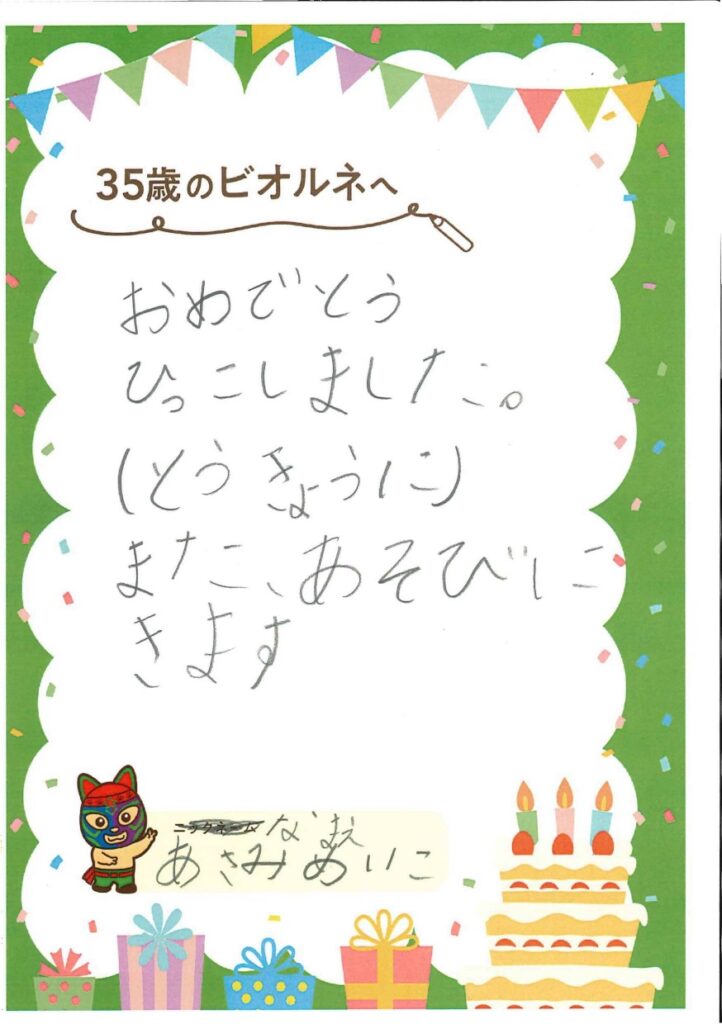 35歳のビオルネへ
おめでとう
ひっこしました。
(とうきょうに)
また、あそびに
きます
ニックネーム なまえ
あさみめいこ